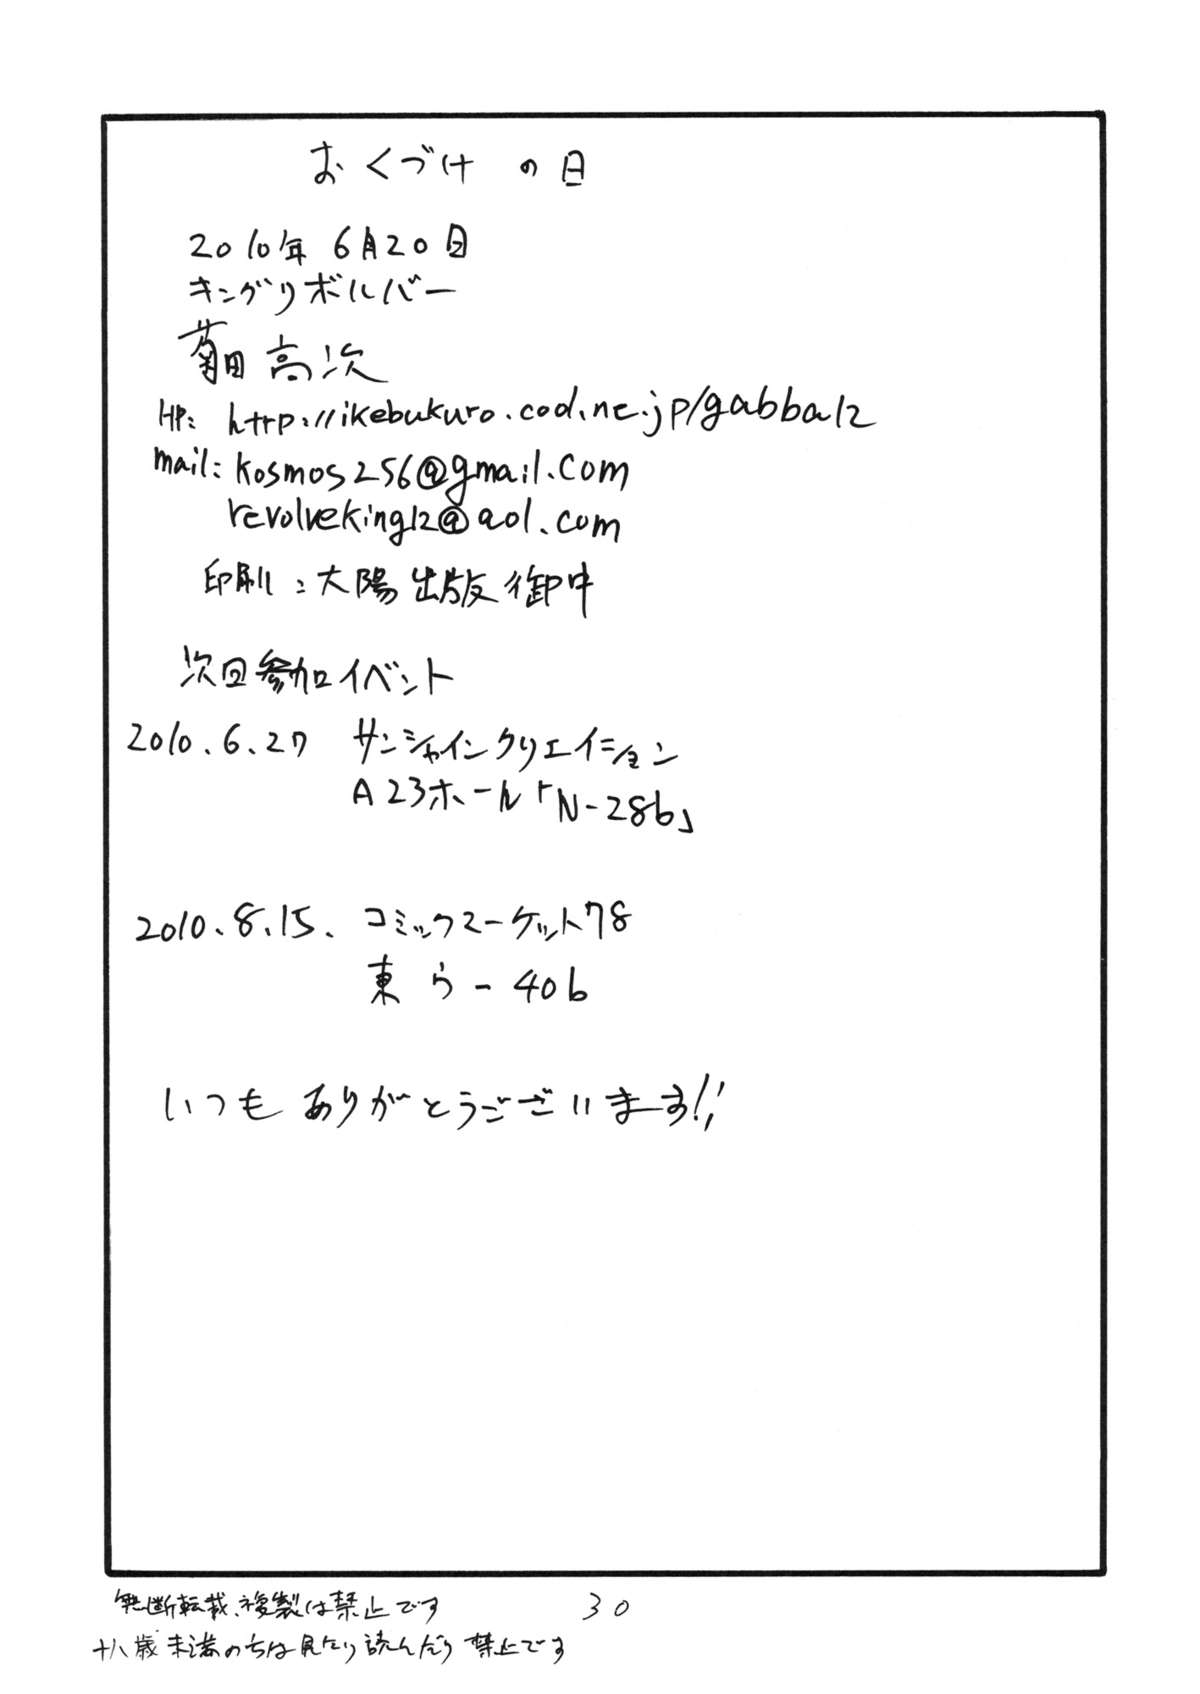 おくづけ の日
2010年 6月20日
キングリボルバー
菊田 高次
HP: http://ikebukuro.cod.ne.jp/gabba12
mail: kosmos256@gmail.com
revolveking12@aol.com
印刷:大陽出版 御中
次回参加イベント
2010.6.27 サンシャインクリエイション
A23ホール「N-28b」
2010.8.15. コミックマーケット78
東 ら-40b
いつも ありがとうございます!!
無断転載、複製は禁止です
30
十八歳未満のちは見たり読んだり禁止です